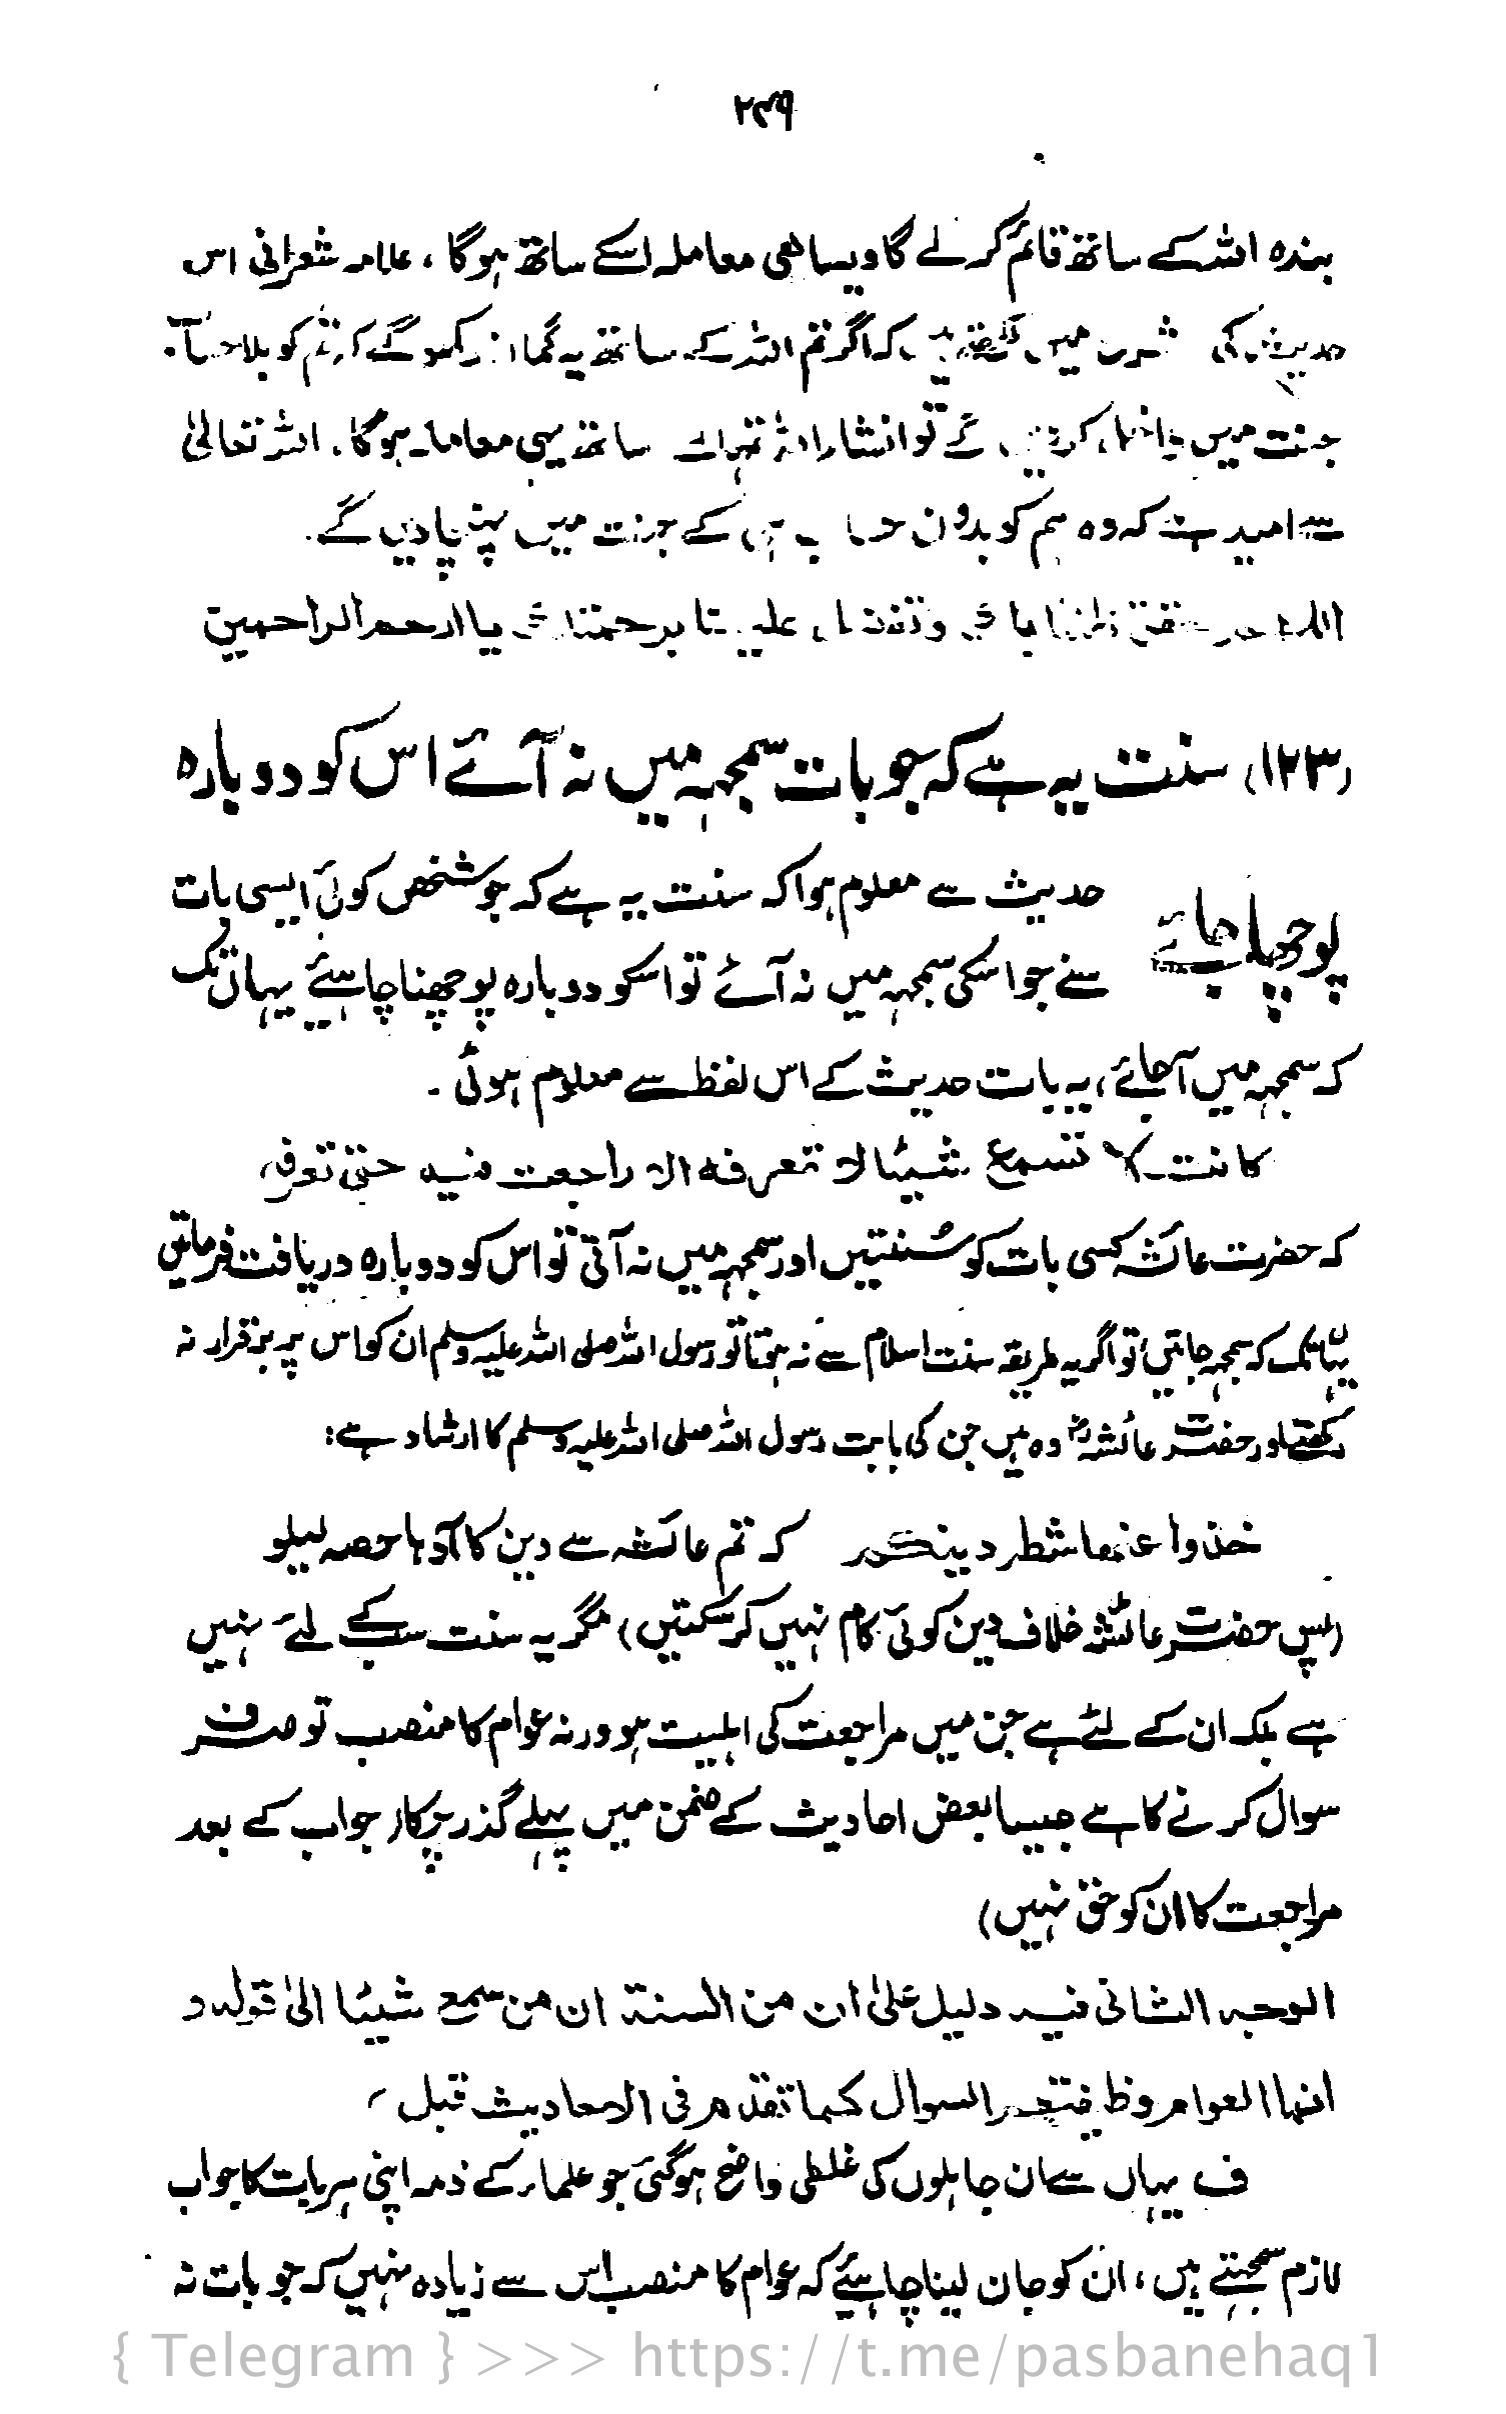 ۲۴۹
بندہ اللہ کے ساتھ قائم کر لے گا ویسا ہی معاملہ اسکے ساتھ ہوگا ، علامہ شعرانی اس
حدیث کی شرح میں لکھتے ہیں کہ اگر تم اللہ کے ساتھ یہ گمان رکھو گے کہ تم کو بلا حساب
جنت میں داخل کردیں گے تو انشاء اللہ تمہارے ساتھ یہی معاملہ ہوگا ، اللہ تعالیٰ
سے امید ہے کہ وہ ہم کو بدون حساب ہی کے جنت میں پہنچا دیں گے۔
اللهم ظننا وتفضل علينا برحمتك يا ارحم الراحمين
(۱۲۳) سنت یہ ہے کہ جو بات سمجہہ میں نہ آئے اس کو دوبارہ
پوچھا جائے حدیث سے معلوم ہوا کہ سنت یہ ہے کہ جو شخص کوئی ایسی بات
سنے جو اسکی سمجہہ میں نہ آئے تو اسکو دوبارہ پوچھنا چاہئے یہاں تک
کہ سمجہہ میں آجائے ، یہ بات حدیث کے اس لفظ سے معلوم ہوئی ۔
كانت لا تسمع شيئا لا تعرفه الا راجعت فيه حتى تعرفه
کہ حضرت عائشہ کسی بات کو سُنتیں اور سمجہہ میں نہ آتی تو اس کو دوبارہ دریافت فرماتیں
یہانتک کہ سمجہہ جاتیں تو اگر یہ طریقہ سنت اسلام سے نہ ہوتا تو رسول اللہ صلی اللہ علیہ وسلم ان کو اس پر برقرار نہ
رکھتے اور حضرت عائشہؓ وہ ہیں جن کی بابت رسول اللہ صلی اللہ علیہ وسلم کا ارشاد ہے :
خذوا عنها شطر دينكم کہ تم عائشہ سے دین کا آدہا حصہ لیلو
(پس حضرت عائشہ خلاف دین کوئی کام نہیں کرسکتیں) مگر یہ سنت سب کے لئے نہیں
ہے بلکہ ان کے لئے ہے جن میں مراجعت کی اہلیت ہو ورنہ عوام کا منصب تو صرف
سوال کرنے کا ہے جیسا بعض احادیث کے ضمن میں پہلے گذر چکا (جواب کے بعد
مراجعت کا ان کو حق نہیں)
الوجه الثانى فيه دليل علىٰ ان من السنة ان من سمع شيئا الىٰ قوله و
انما العوام وظيفتهم السوال كما تقدم فى الاحاديث قبل
ف یہاں سے ان جاہلوں کی غلطی واضح ہوگئی جو علماء کے ذمہ اپنی ہر بات کا جواب
لازم سمجہتے ہیں ، ان کو جان لینا چاہئے کہ عوام کا منصب اس سے زیادہ نہیں کہ جو بات نہ
{ Telegram } >>> https://t.me/pasbanehaq1